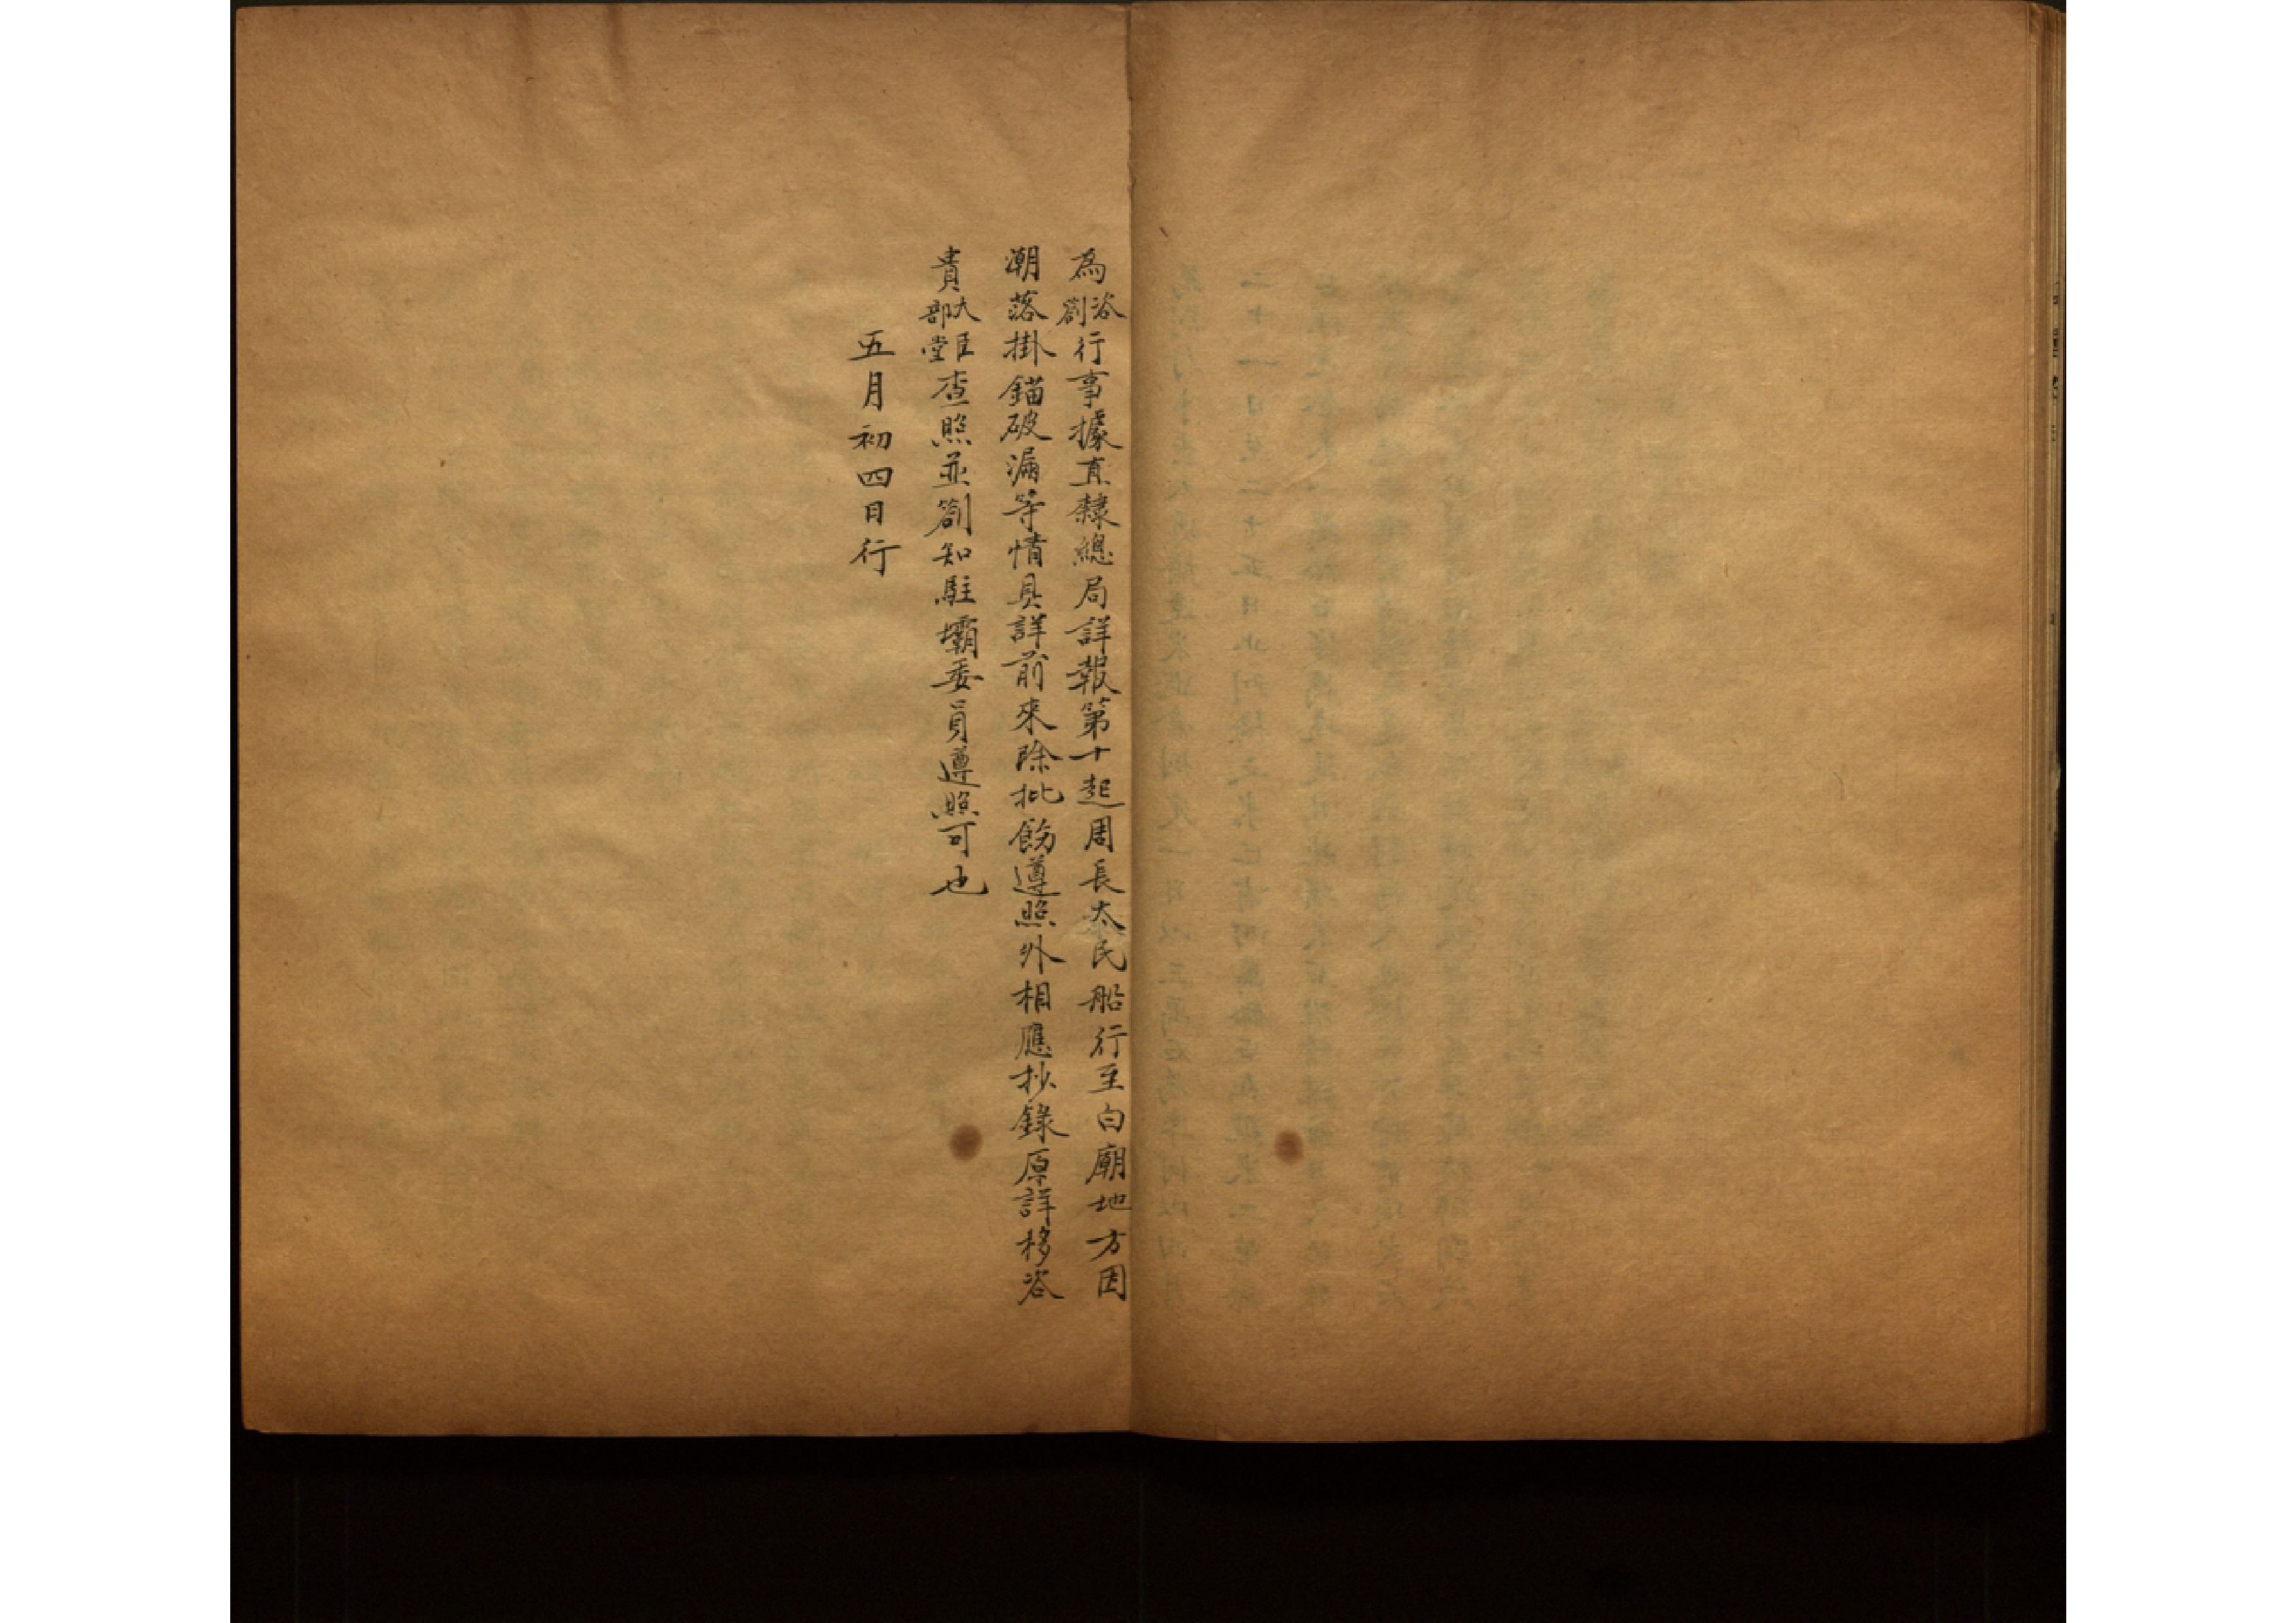 為咨劄行事據直隸總局詳報第十起周長太民船行至白廟地方因
潮落掛錨破漏等情具詳前來除批飭遵照外相應抄錄原詳移咨
貴大臣部堂查照並劄知駐壩委員遵照可也
五月初四日行